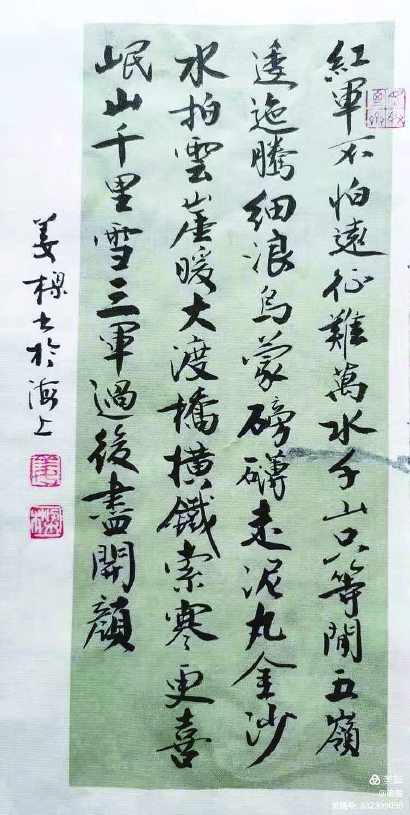 紅軍不怕遠征難萬水千山只等閒五嶺
逶迤騰細浪烏蒙磅礴走泥丸金沙
水拍雲崖暖大渡橋橫鐵索寒更喜
岷山千里雪三軍過後盡開顏
姜书於海上
美篇
美篇号: 332309096